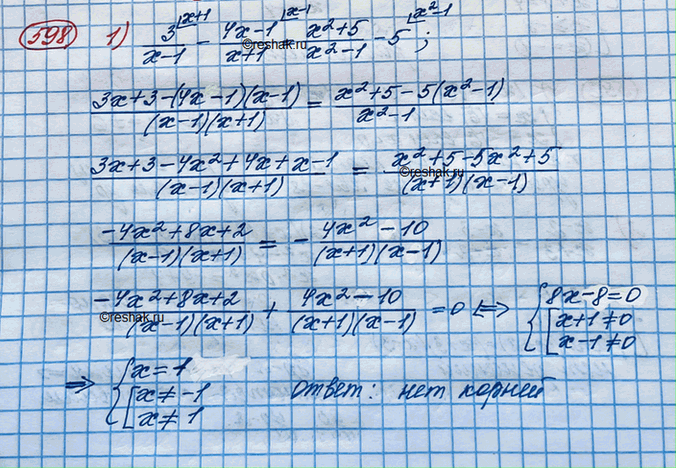 598 1) 3^{⌊x+1}/(x-1) - (4x-1)^{⌊x-1}/(x+1) = (x²+5)/(x²-1) - 5^{⌊x²-1} ;
©reshak.ru
(3x+3-(4x-1)(x-1))/((x-1)(x+1)) = (x²+5-5(x²-1))/(x²-1)
(3x+3-4x²+4x+x-1)/((x-1)(x+1)) = (x²+5-5x²+5)/((x+1)(x-1))
©reshak.ru
(-4x²+8x+2)/((x-1)(x+1)) = - (4x²-10)/((x+1)(x-1))
(-4x²+8x+2)/((x-1)(x+1)) + (4x²-10)/((x+1)(x-1)) = 0 ⟺ { 8x-8=0
[ x+1≠0
x-1≠0
©reshak.ru
⇒ { x=1
[ x≠-1
x≠1
ответ: нет корней